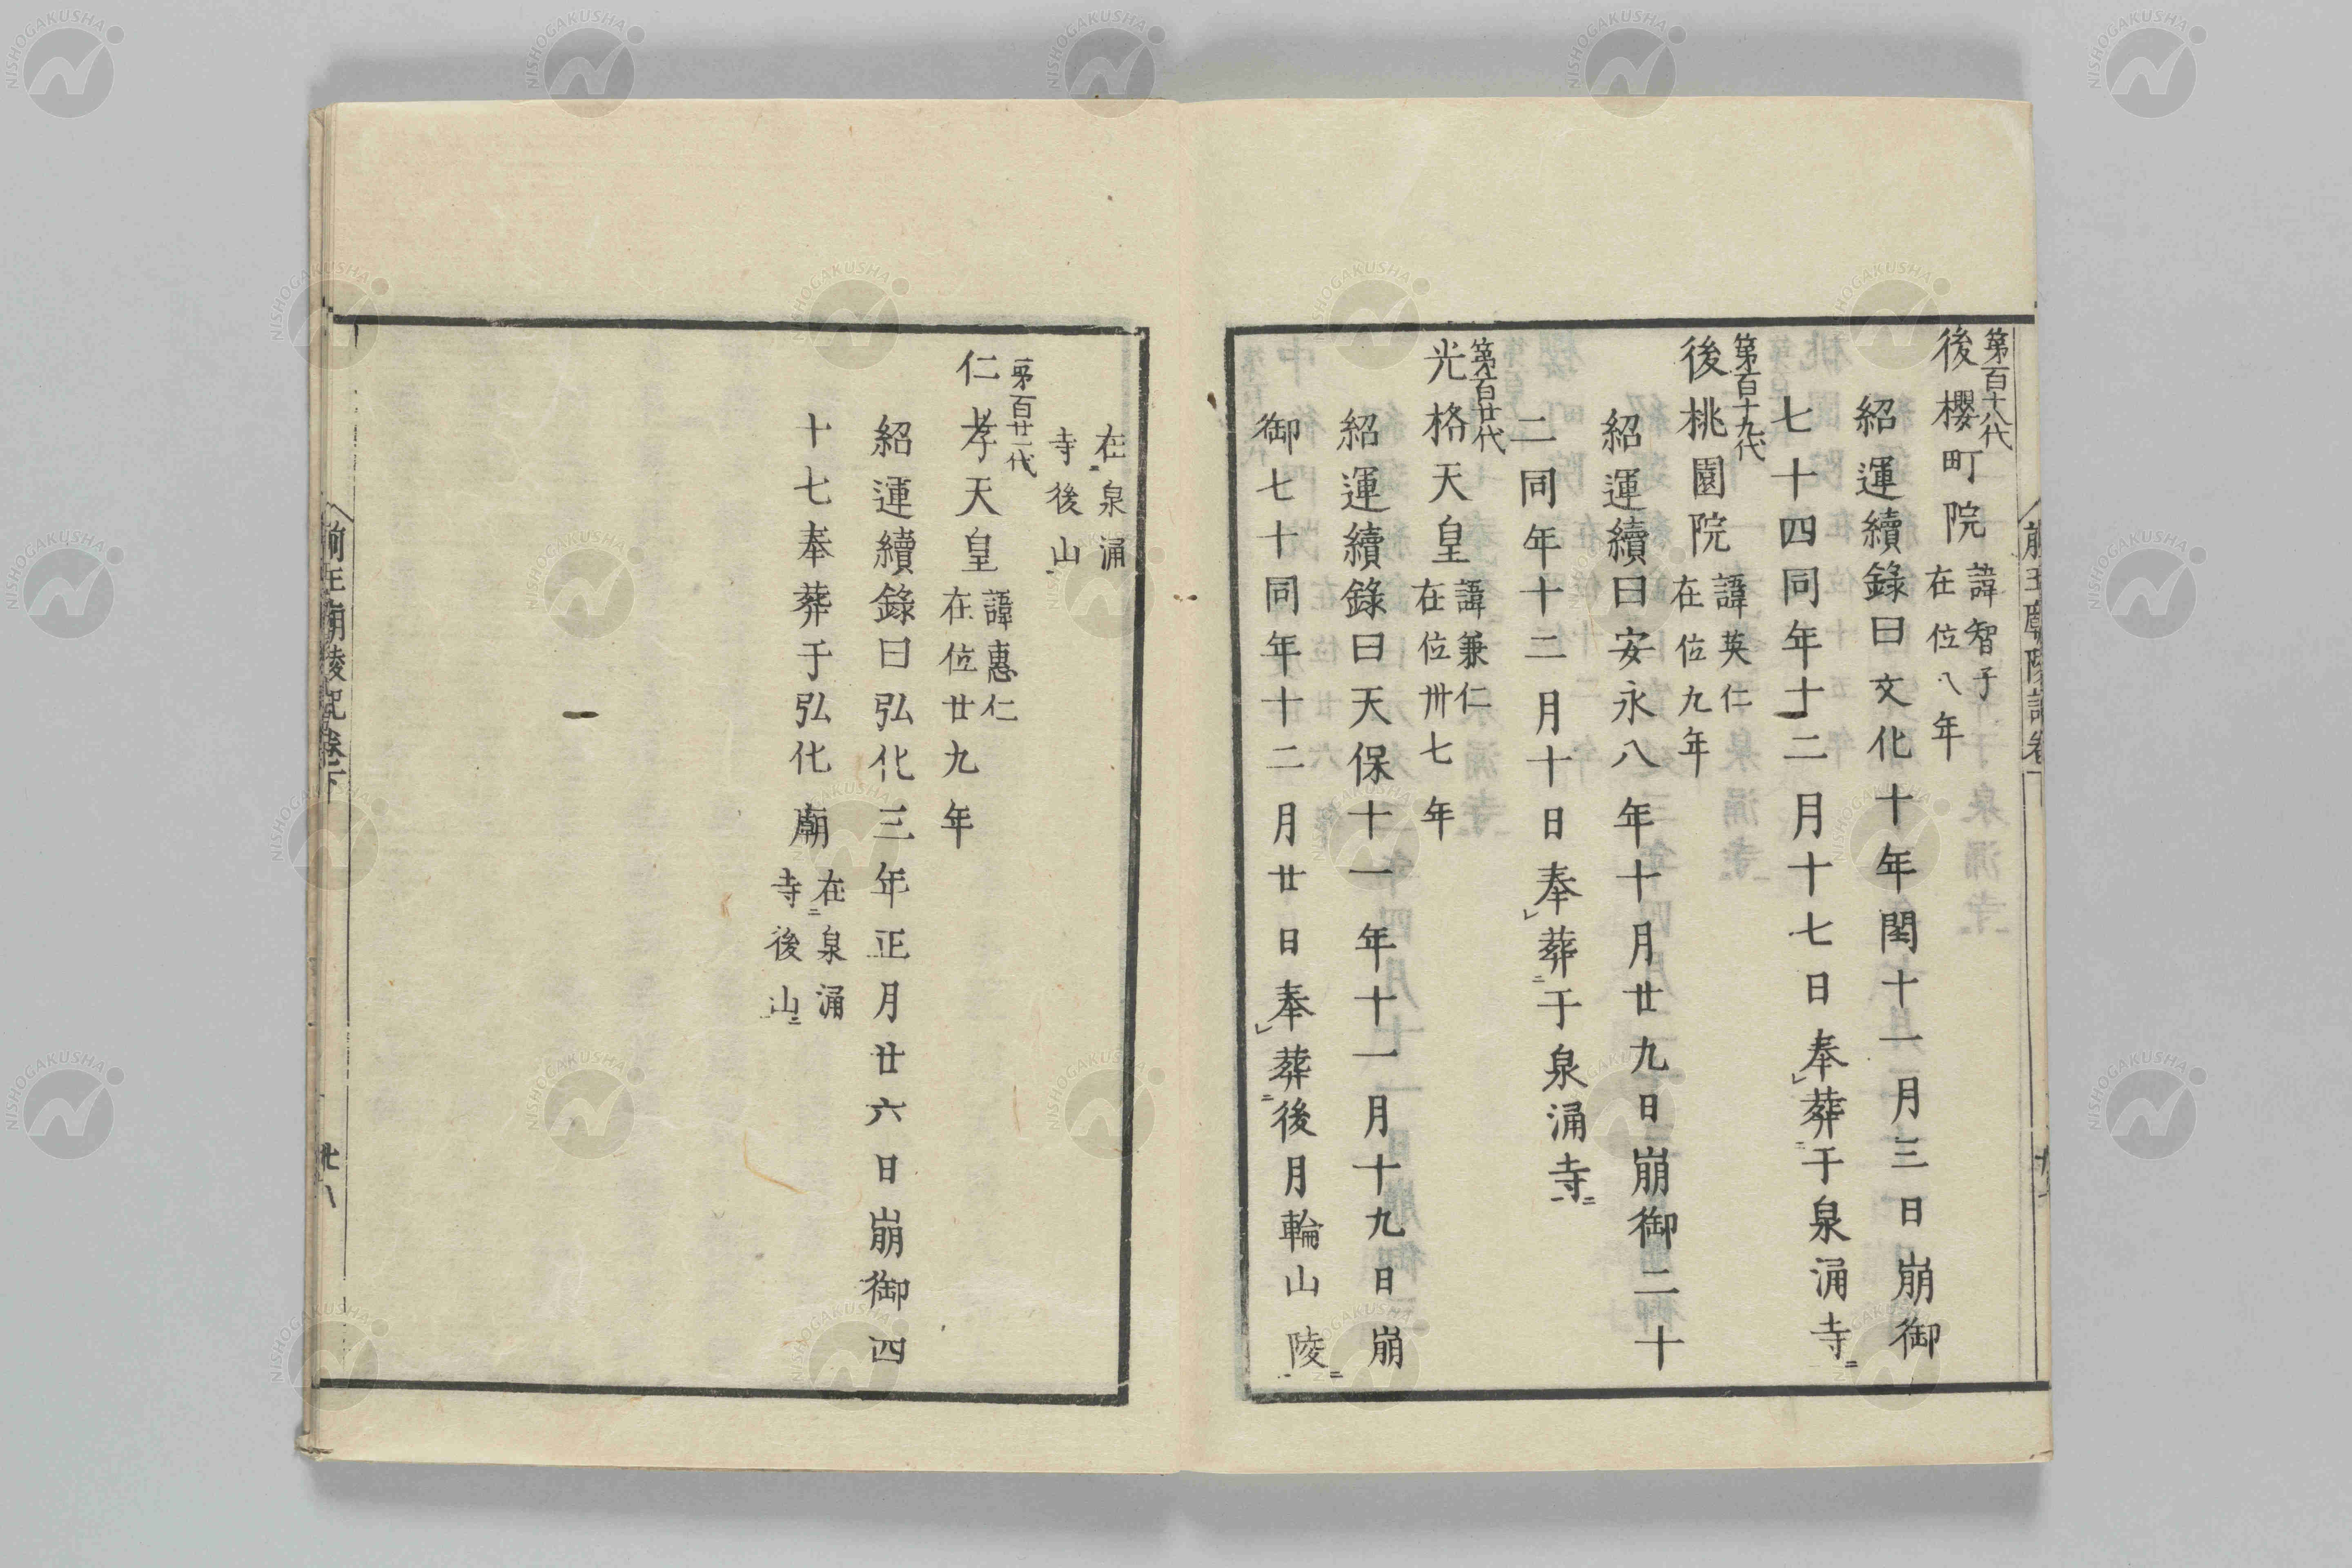 第百十八代
後櫻町院 諱智子
在位八年
紹運續錄曰文化十年閏十一月三日崩御
七十四同年十二月十七日奉葬于泉涌寺
第百十九代
後桃園院 諱英仁
在位九年
紹運續曰安永八年十月廿九日崩御二十
二同年十二月十日奉葬于泉涌寺
第百廿代
光格天皇 諱兼仁
在位卅七年
紹運續錄曰天保十一年十一月十九日崩
御七十同年十二月廿日奉葬後月輪山陵
在泉涌
寺後山
第百廿一代
仁孝天皇 諱惠仁
在位廿九年
紹運續錄曰弘化三年正月廿六日崩御四
十七奉葬于弘化廟 在泉涌
寺後山
前王廟陵記卷下
廿八
NISHOGAKUSHA